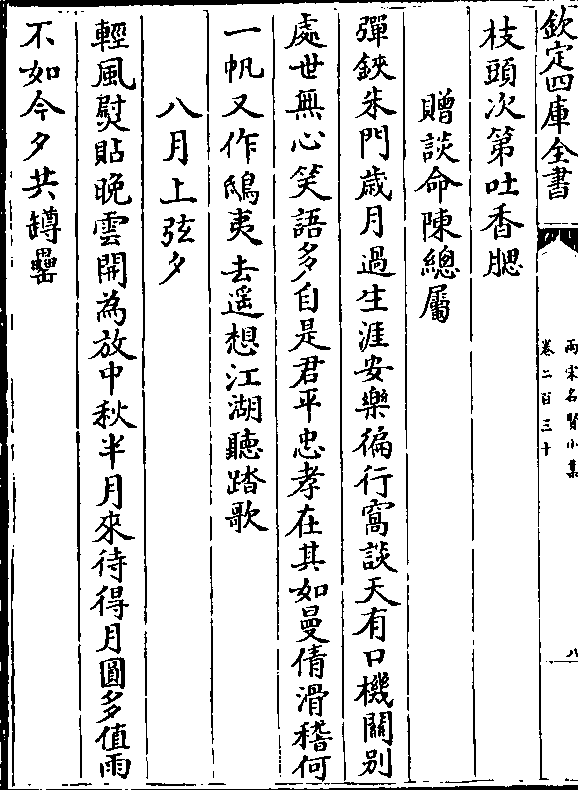 欽定四庫全書
兩宋名賢小集
卷二百三十
八
枝頭次第吐香腮
贈談命陳總屬
彈鋏朱門歲月過生涯安樂徧行窩談天有口機關別
處世無心笑語多自是君平忠孝在其如曼倩滑稽何
一帆又作鴟夷去遥想江湖聽踏歌
八月上弦夕
輕風熨貼晚雲開為放中秋半月來待得月圓多值雨
不如今夕共罇罍